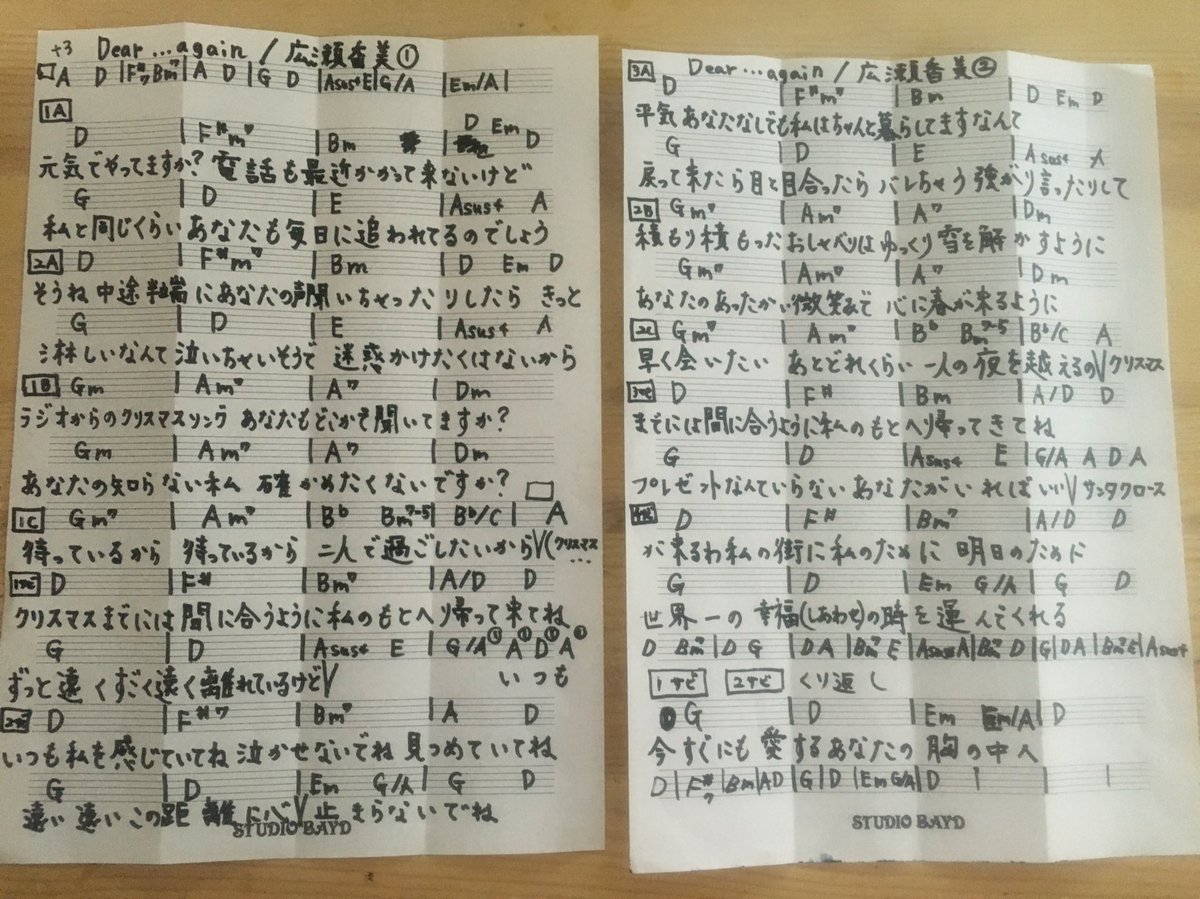 +3 Dear...again / 広瀬香美①
A D | F#7 Bm7 | A D | G D | Asus4 E | G/A | Em/A |
1A
D | F#m7 | Bm | D Em D
元気でやってますか? 電話も最近かかって来ないけど
G | D | E | Asus4 A
私と同じくらい あなたも毎日に追われてるのでしょう
2A D | F#m7 | Bm | D Em D
そうね 中途半端にあなたの声聞いちゃったりしたら きっと
G | D | E | Asus4 A
淋しいなんて 泣いちゃいそうで 迷惑かけたくはないから
1B Gm | Am7 | A7 | Dm
ラジオからのクリスマスソング あなたもどこかで聞いてますか?
Gm | Am7 | A7 | Dm
あなたの知らない私 確かめたくないですか?
1C Gm7 | Am7 | Bb Bm7-5 | Bb/C | A
待っているから 待っているから 二人で過ごしたいから V (クリスマス...
1サビ D | F# | Bm7 | A/D D
クリスマスまでには間に合うように私のもとへ帰って来てね
G | D | Asus4 E | G/A A D A
ずっと遠くすごく遠く離れているけど V いつも
2サビ D | F#7 | Bm7 | A D
いつも私を感じていてね 泣かせないでね 見つめていてね
G | D | Em G/A | G D
遠い 遠い この距離に心 V 止まらないでね
STUDIO BAYD
3A Dear...again / 広瀬香美②
D | F#m7 | Bm | D Em D
平気 あなたなしでも私はちゃんと暮らしてますなんて
G | D | E | Asus4 A
戻って来たら目と目合ったら バレちゃう強がり言ったりして
2B Gm7 | Am7 | A7 | Dm
積もり積もったおしゃべりは ゆっくり雪を解かすように
Gm7 | Am7 | A7 | Dm
あなたのあったかい微笑みで 心に春が来るように
2C Gm7 | Am7 | Bb Bm7-5 | Bb/C A
早く会いたい あとどれくらい 一人の夜を越えるの V クリスマス
3サビ D | F# | Bm | A/D D
までには間に合うように私のもとへ帰ってきてね
G | D | Asus4 E | G/A A D A
プレゼントなんていらない あなたがいればいい V サンタクロース
4サビ D | F# | Bm7 | A/D D
が来るわ私の街に私のために 明日のために
G | D | Em G/A | G D
世界一の幸福(しあわせ)の時を運んでくれる
D Bm7 | D G | D A | Bm7 E | Asus4 A | Bm7 D | G | D A | Bm7 E | Asus4
1サビ 2サビ くり返し
G | D | Em Em/A | D
今すぐにも 愛するあなたの胸の中へ
D | F#7 | Bm | A D | G | D | Em G/A | D | |
STUDIO BAYD